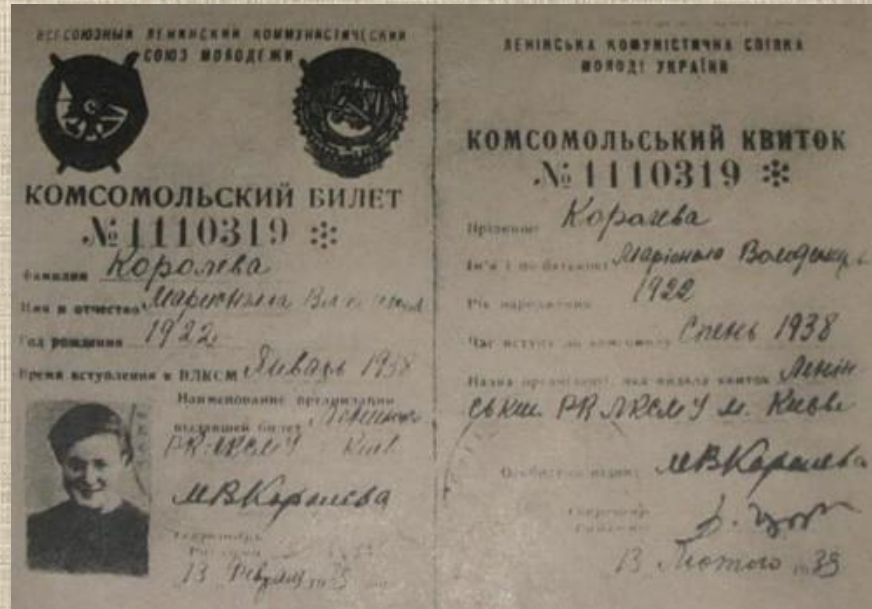 ВСЕСОЮЗНЫЙ ЛЕНИНСКИЙ КОММУНИСТИЧЕСКИЙ
СОЮЗ МОЛОДЕЖИ
КОМСОМОЛЬСКИЙ БИЛЕТ
№ 1110319 *
Фамилия Королева
Имя и отчество
Год рождения 1922
Время вступления в ВЛКСМ Январь 1938
Наименование организации
выдавшей билет
РК ЛКСМУ
МВКоролева
13 Февраля 1939
ЛЕНІНСЬКА КОМУНІСТИЧНА СПІЛКА
МОЛОДІ УКРАЇНИ
КОМСОМОЛЬСЬКИЙ КВИТОК
№ 1110319 *
Прізвище Королева
Ім'я і по батькові
Рік народження 1922
Час вступу до комсомолу 1938
Назва організації, яка видала квиток Ленін
ським РК ЛКСМУ м. Києва
Особистий підпис МВКоролева
13 Лютого 1939